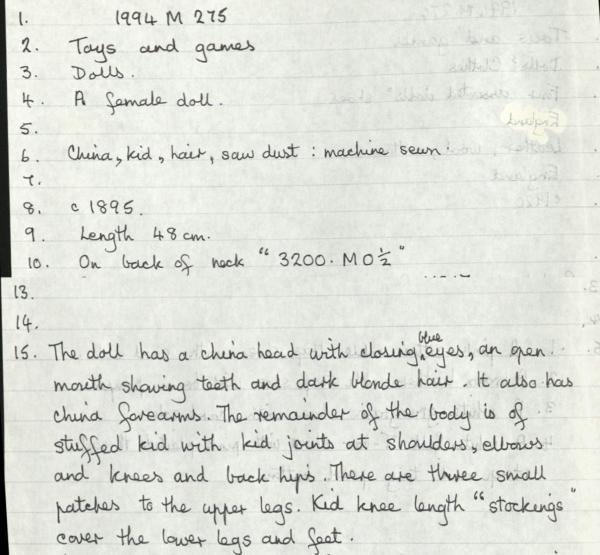 1. 1994 M 275
2. Toys and games
3. Dolls.
4. A female doll.
5.
6. China, kid, hair, saw dust : machine sewn.
7.
8. c 1895.
9. Length 48 cm.
10. On back of neck "3200. M 0 ½"
13.
14.
15. The doll has a china head with closing blue eyes, an open
mouth showing teeth and dark blonde hair. It also has
china forearms. The remainder of the body is of
stuffed kid with kid joints at shoulders, elbows
and knees and back hips. There are three small
patches to the upper legs. Kid knee length "stockings"
cover the lower legs and feet.